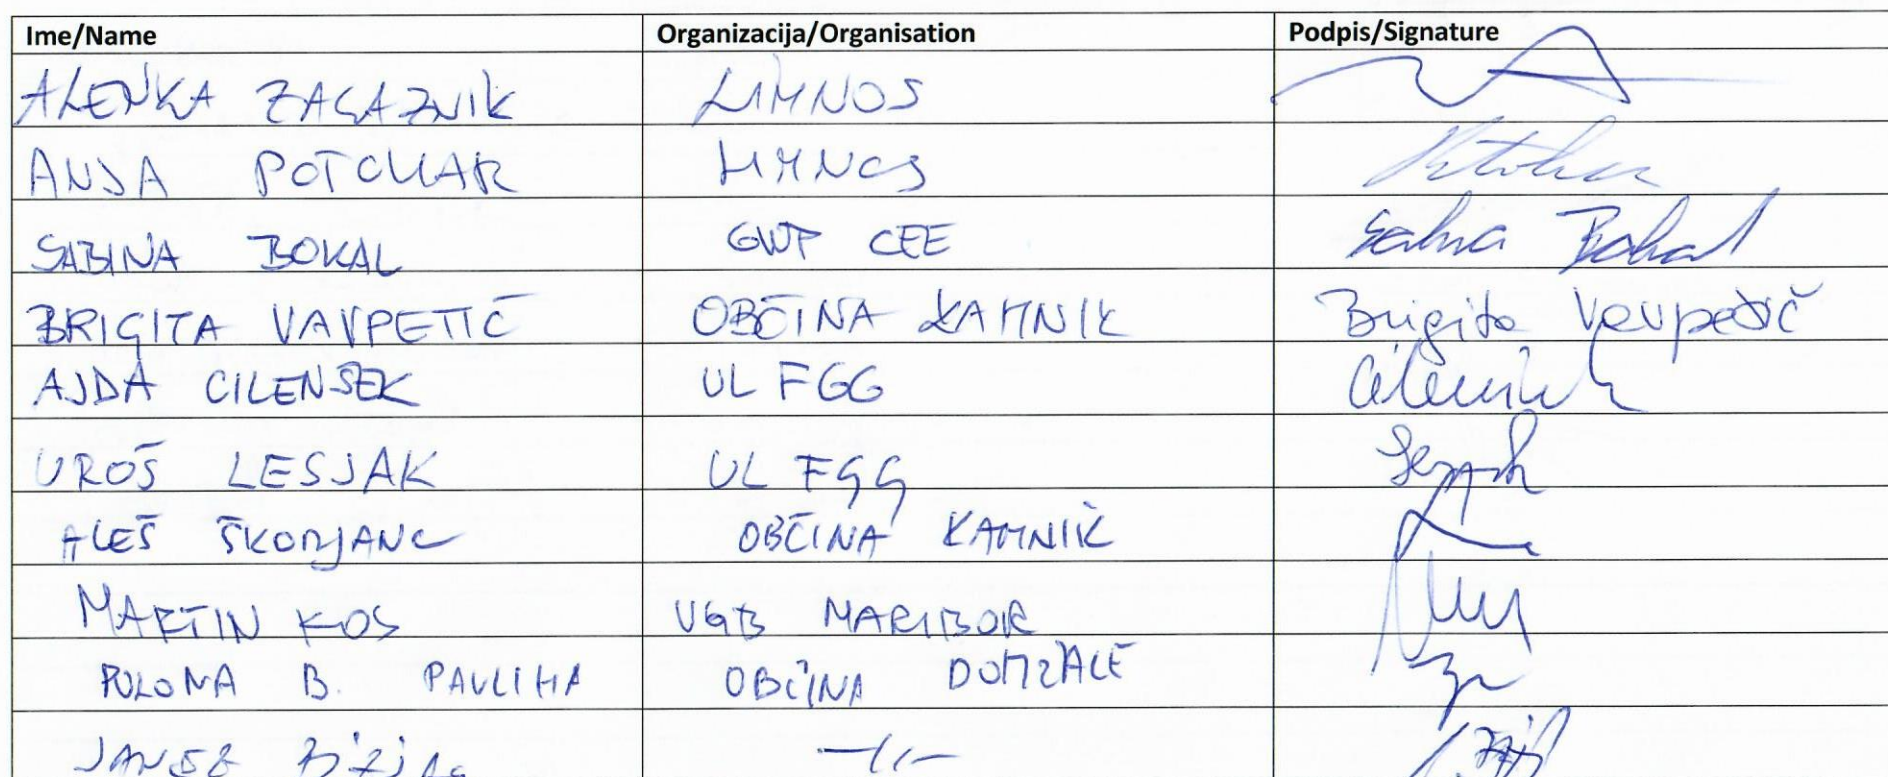 Ime/Name Organizacija/Organisation Podpis/Signature
ALENKA ZAGAZNIK LIMNOS
ANJA POTOKAR LIMNOS
SABINA BOKAL GWP CEE Sabina Bokal
BRIGITA VAVPETIČ OBČINA KAMNIK Brigita Vavpetič
AJDA CILENŠEK UL FGG
UROŠ LESJAK UL FGG
ALEŠ ŠKORJANC OBČINA KAMNIK
MARTIN KOS VGB MARIBOR
POLONA B. PAVLIHA OBČINA DOMŽALE
JANEZ -//-